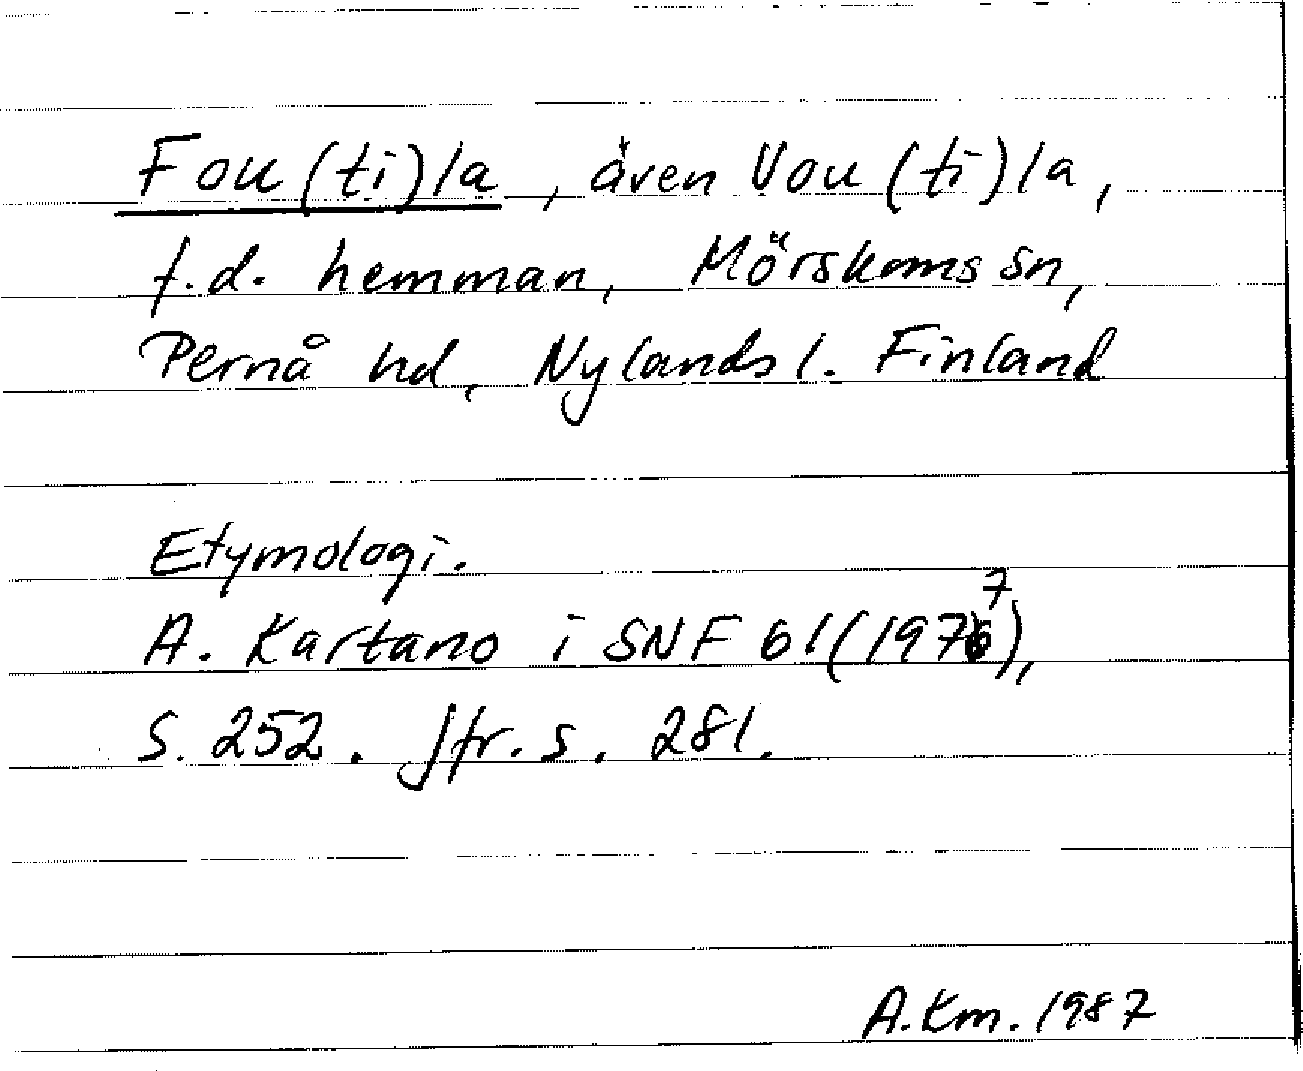 Fou(ti)la, även Vou(ti)la,
f.d. hemman, Mörskoms sn,
Pernå hd, Nylands l. Finland
Etymologi.
A. Kartano i SNF 61(1977),
S. 252. Jfr. s. 281.
A.Km. 1987